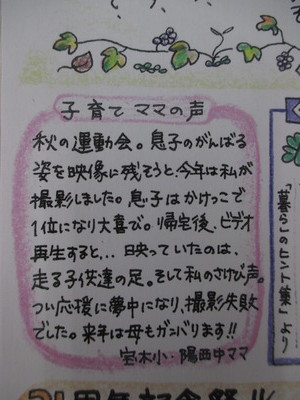 子育てママの声
秋の運動会。息子のがんばる
姿を映像に残そうと、今年は私が
撮影しました。息子はかけっこで
1位になり大喜び。帰宅後、ビデオ
再生すると、… 映っていたのは、
走る子供達の足。そして私のさけび声。
つい応援に夢中になり、撮影失敗
でした。来年は母もガンバります!!
宝木小・陽西中ママ
「暮らしのヒント集」より